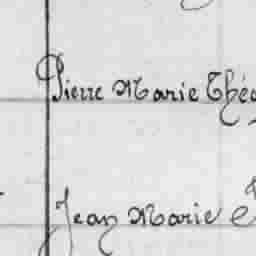 Pierre Marie Thé
Jean Marie